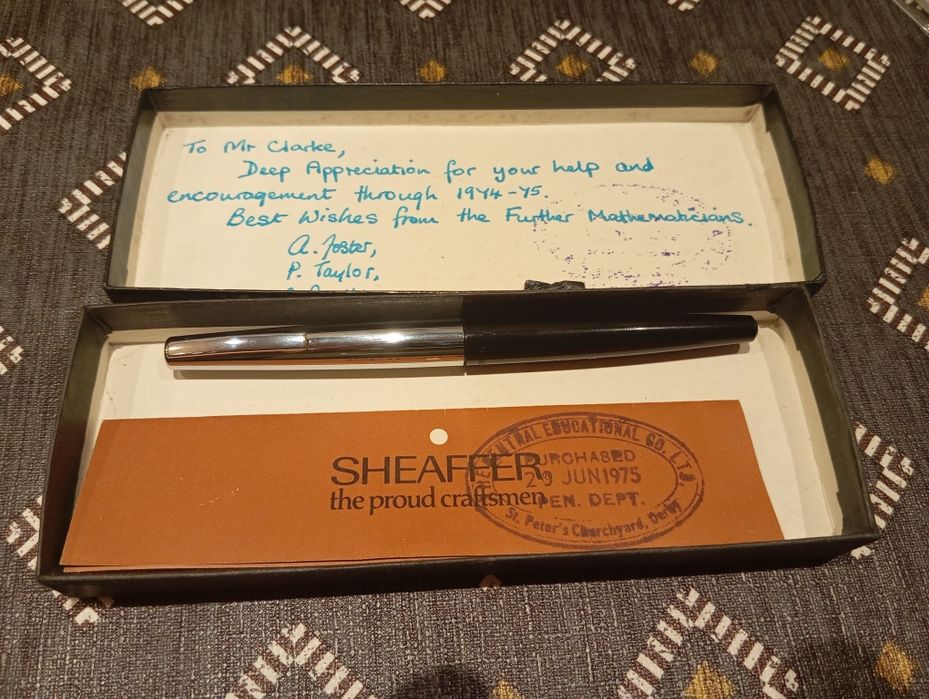 To Mr Clarke,
Deep Appreciation for your help and
encouragement through 1974-75.
Best Wishes from the Further Mathematicians.
A. Foster,
P. Taylor,
SHEAFFER
the proud craftsmen
CENTRAL EDUCATIONAL CO. LTD.
PURCHASED
JUN 1975
PEN. DEPT.
St. Peter's Churchyard, Derby